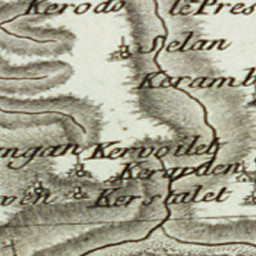 Kerodo le Pres
Selan
Keramb
ngan Kervoilek
Kerarden
ven Kerstalet